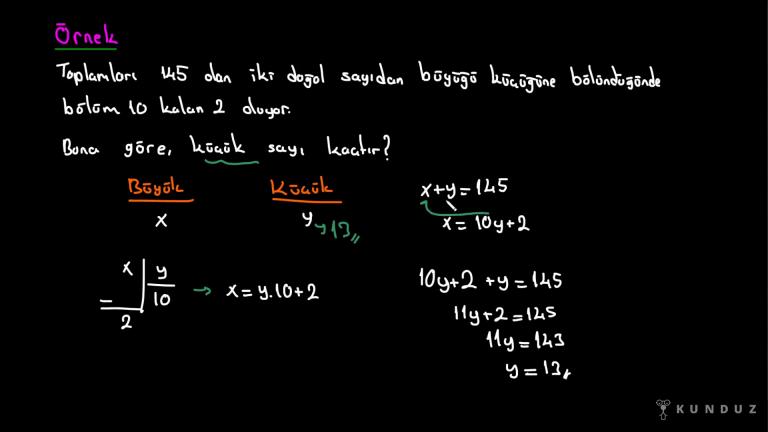 Örnek
Toplamları 145 olan iki doğal sayıdan büyüğü küçüğüne bölündüğünde
bölüm 10 kalan 2 oluyor.
Buna göre, küçük sayı kaçtır?
Büyük Küçük x+y=145
x y y13,, x=10y+2
x y 10y+2+y=145
10 → x=y.10+2
2 11y+2=145
11y=143
y=13,
KUNDUZ